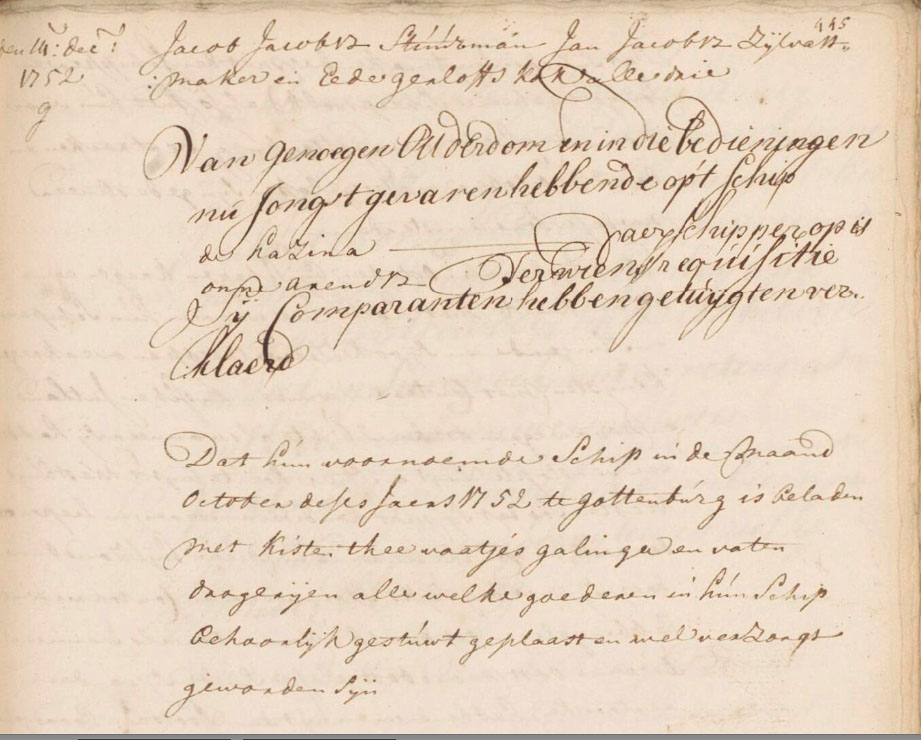 445
den 14: dec:
1752
g
Jacob Jacobsz Stuurman Jan Jacobsz Zijlvatt-
maker en Eede geroffs kok alle drie
Van genoegen Ouderdom en in die bedieningen
nu Jongst gevaren hebbende op't schip
de Razina daer schipper op is
onne arendsz Ter wiens requisitie
Sij Comparanten hebben getuijgt en ver-
klaerd
Dat hun voornoemde Schip in de Maand
October deses Jaers 1752 te gottenburg is beladen
met kiste: thee vaatjes galinga en vaten
drogerijen alle welke goederen in hun Schip
behoorlijk gestuwt geplaast en wel verzorgt
geworden sijn